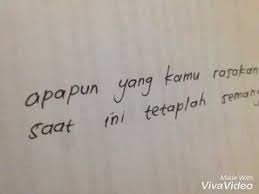 apapun yang kamu rasakan
saat ini tetaplah semang
Made With
VivaVideo